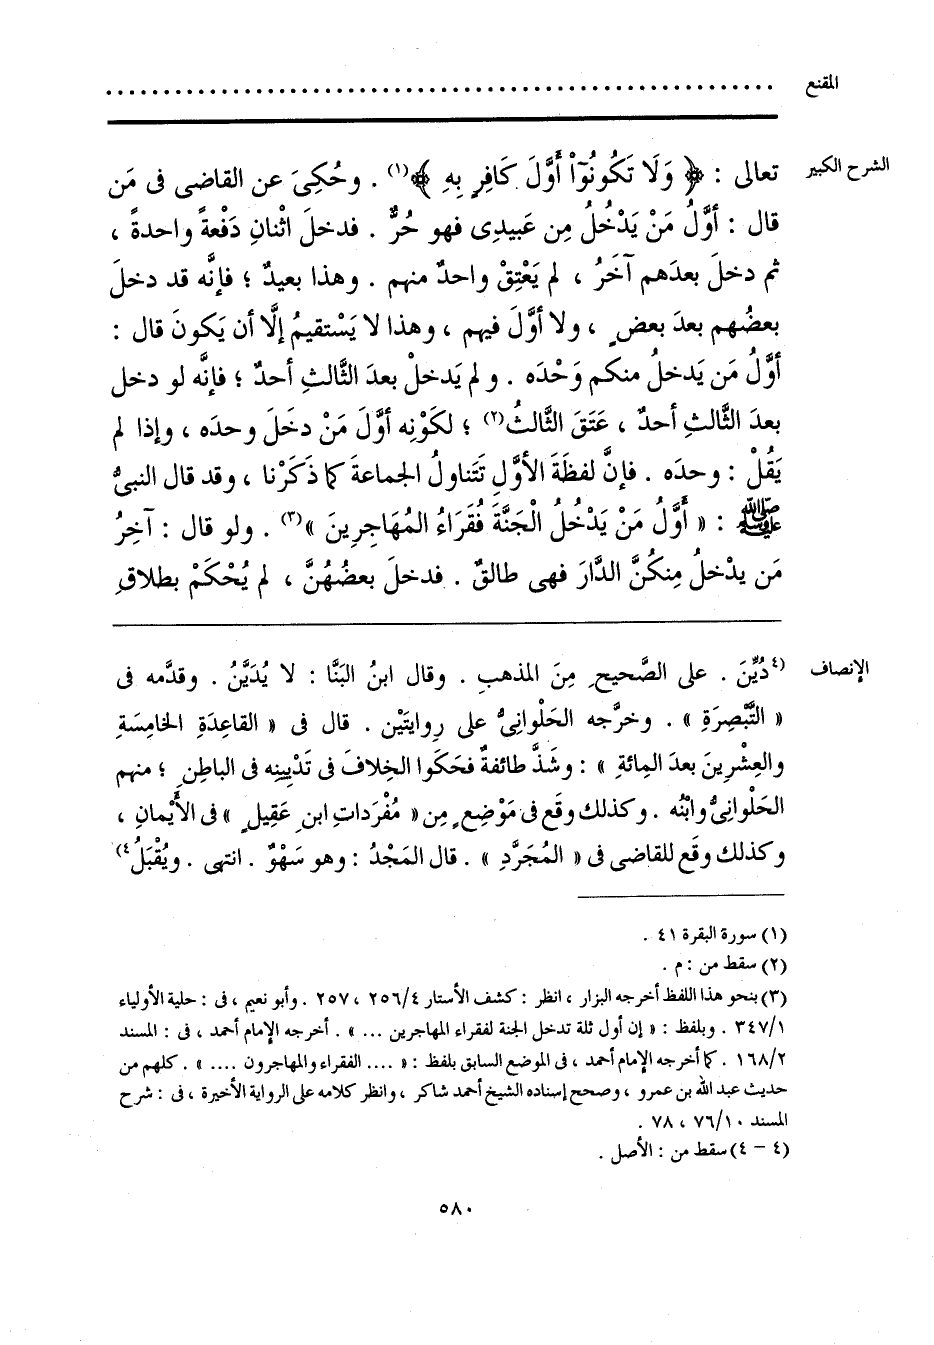 المقنع ........................................................
الشرح الكبير تعالى : ﴿ وَلَا تَكُونُوٓاْ أَوَّلَ كَافِرٍ بِهِ ﴾(١) . وحُكِىَ عن القاضى فى مَن
قال : أوَّلُ مَنْ يَدْخُلُ مِن عَبِيدِى فهو حُرٌّ . فدخلَ اثْنانِ دَفْعةً واحدةً ،
ثم دخلَ بعدَهم آخَرُ ، لم يَعْتِقْ واحدٌ منهم . وهذا بعيدٌ ؛ فإنَّه قد دخلَ
بعضُهم بعدَ بعضٍ ، ولا أوَّلَ فيهم ، وهذا لا يَسْتقيمُ إلَّا أن يَكونَ قال :
أوَّلُ مَن يَدخلُ منكم وَحْدَه . ولم يَدخلْ بعدَ الثَّالثِ أحدٌ ؛ فإنَّه لو دخل
بعدَ الثَّالثِ أحدٌ ، عَتَقَ الثَّالثُ(٢) ؛ لكَوْنِه أوَّلَ مَنْ دخَلَ وحدَه ، وإذا لم
يَقُلْ : وحدَه . فإنَّ لفظَةَ الأوَّلِ تَتَناولُ الجماعةَ كما ذَكَرْنا ، وقد قال النبىُّ
ﷺ : « أَوَّلُ مَنْ يَدْخُلُ الْجَنَّةَ فُقَرَاءُ المُهَاجِرِينَ »(٣) . ولو قال : آخِرُ
مَن يدْخلُ مِنكُنَّ الدَّارَ فهى طالقٌ . فدخلَ بعضُهُنَّ ، لم يُحْكَمْ بطلاقِ
الإنصاف (٤دُيِّنَ . على الصَّحيحِ مِنَ المذهبِ . وقال ابنُ البَنَّا : لا يُدَيَّنُ . وقدَّمه فى
« التَّبْصِرَةِ » . وخرَّجه الحَلْوانِىُّ على رِوايتَيْن . قال فى « القاعِدَةِ الخامِسَةِ
والعِشْرِينَ بعدَ المِائةِ » : وشَذَّ طائفةٌ فحَكَوا الخِلافَ فى تَدْيِينِه فى الباطنِ ؛ منهم
الحَلْوانِىُّ وابْنُه . وكذلك وقَع فى مَوْضِعٍ مِن « مُفْرَداتِ ابنِ عَقِيلٍ » فى الأَيْمانِ ،
وكذلك وقَع للقاضى فى « المُجَرَّدِ » . قال المَجْدُ : وهو سَهْوٌ . انتهى . ويُقْبَلُ٤)
(١) سورة البقرة ٤١ .
(٢) سقط من : م .
(٣) بنحو هذا اللفظ أخرجه البزار ، انظر : كشف الأستار ٢٥٦/٤ ، ٢٥٧ . وأبو نعيم ، فى : حلية الأولياء
٣٤٧/١ . وبلفظ : « إن أول ثلة تدخل الجنة لفقراء المهاجرين ... » . أخرجه الإمام أحمد ، فى : المسند
١٦٨/٢ . كما أخرجه الإمام أحمد ، فى الموضع السابق بلفظ : « .... الفقراء والمهاجرون .... » . كلهم من
حديث عبد الله بن عمرو ، وصحح إسناده الشيخ أحمد شاكر ، وانظر كلامه على الرواية الأخيرة ، فى : شرح
المسند ٧٦/١٠ ، ٧٨ .
(٤ - ٤) سقط من : الأصل .
٥٨٠